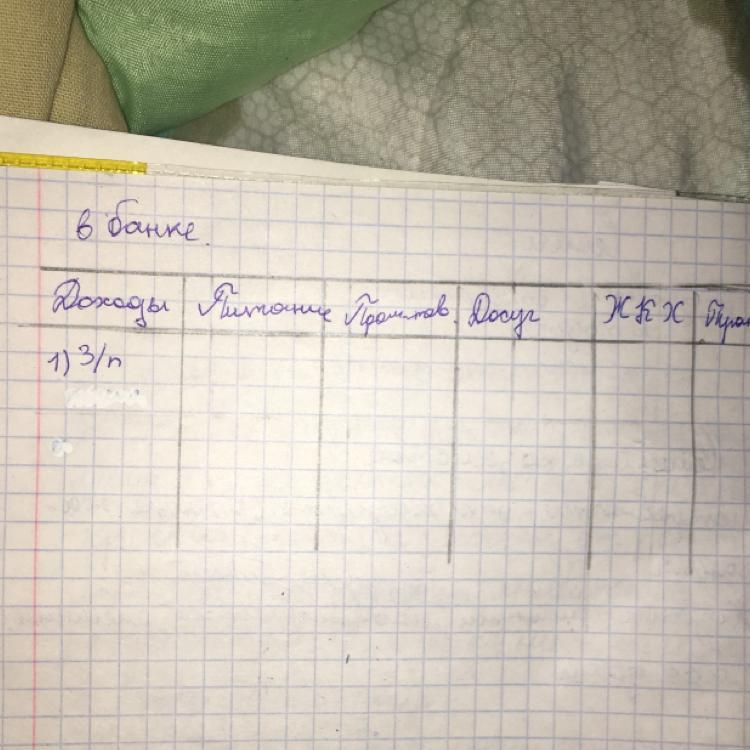 в банке.
Доходы Питание Пром.тов. Досуг ЖКХ
1) З/п